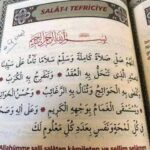 SALÂT-I TEFRİCİYE
بسم الله الرحمن الرحيم
اَللّٰهُمَّ صَلِّ صَلَاةً كَامِلَةً وَسَلِّمْ سَلَامًا تَامًّا عَلٰى سَيِّدِنَا
بِهِ الْعُقَدُ وَتَنْفَرِجُ بِهِ الْكُرَبُ
بِهِ الْحَوَائِجُ وَتُنَالُ بِهِ الرَّغَائِبُ
وَيُسْتَسْقَى الْغَمَامُ بِوَجْهِهِ الْكَرِيمِ وَعَلٰى اٰلِهِ
فِي كُلِّ لَمْحَةٍ وَنَفَسٍ بِعَدَدِ كُلِّ مَعْلُومٍ لَكَ
Allahümme salli salâten kâmileten ve sellim selâmen